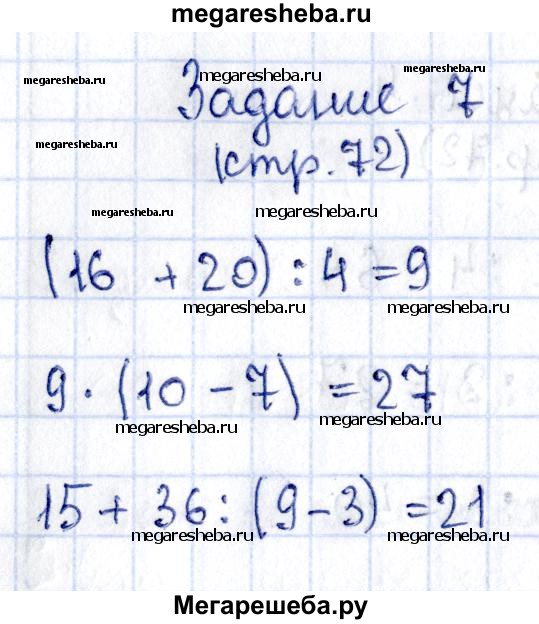 megaresheba.ru
megaresheba.ru megaresheba.ru megaresheba.ru
Задание 7
megaresheba.ru
(стр. 72)
megaresheba.ru megaresheba.ru
(16 + 20) : 4 = 9
megaresheba.ru megaresheba.ru
9 · (10 - 7) = 27
megaresheba.ru megaresheba.ru
15 + 36 : (9 - 3) = 21
megaresheba.ru megaresheba.ru
Мегарешеба.ру